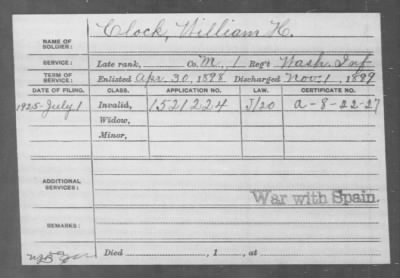 Clock, William H.
NAME OF SOLDIER:
SERVICE: Late rank, Co. M, 1 Reg't Wash. Inf
TERM OF SERVICE: Enlisted Apr. 30, 1898 Discharged Nov. 1, 1899
DATE OF FILING. CLASS. APPLICATION NO. LAW. CERTIFICATE NO.
1925-July 1 Invalid, 1521224 J/20 a-8-22-27
Widow,
Minor,
ADDITIONAL SERVICES:
War with Spain.
REMARKS:
Died , 1 , at